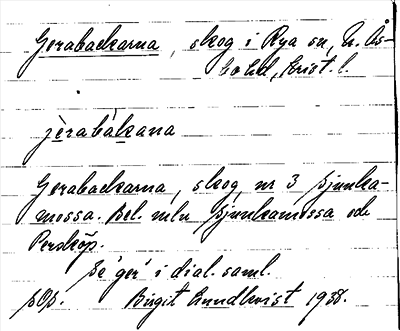 Gerabackarna, skog i Rya sn, N. Ås-
bo hd, Krist. l.
jèrabákana
Gerabackarna, skog, nr 3 Sjunka-
mossa. Bel. mln Sjunkamossa och
Perstöp.
Se 'ger' i dial. saml.
Birgit Lundkvist 1938.